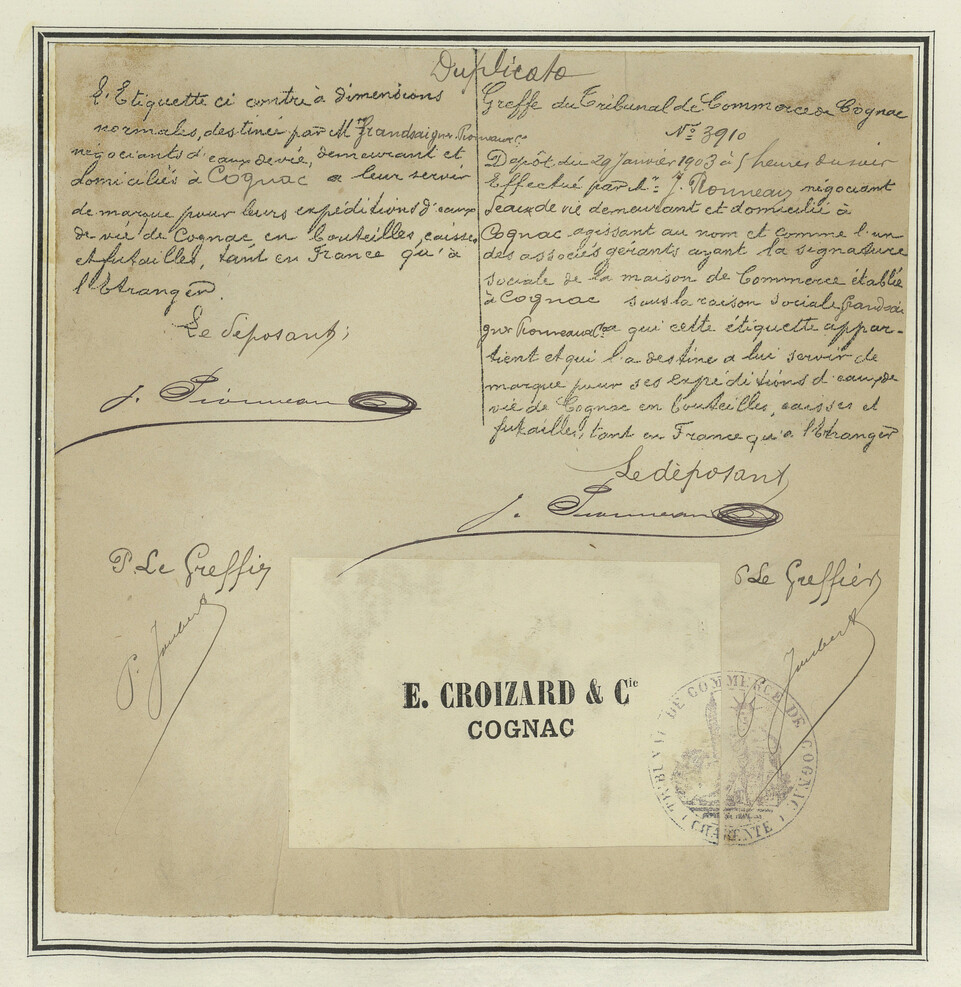 Duplicata
L'Etiquette ci contre à dimensions
normales, destiné par M Grandsaigner Pionneau & Cie
négociants d'eaux de vie, demeurant et
domiciliés à Cognac a leur servir
de marque pour leurs expéditions d'eaux
de vie de Cognac en bouteilles, caisses
et futailles, tant en France qu'à
l'Etranger.
Le déposant,
J. Pionneau
P. Le Greffier
P. Joubert
Greffe du Tribunal de Commerce de Cognac
No 3910
Dépôt du 29 Janvier 1903 à 5 heures du soir
Effectué par M. J. Pionneau négociant
d'eaux de vie demeurant et domicilié à
Cognac agissant au nom et comme l'un
des associés gérants ayant la signature
sociale de la maison de Commerce établie
à Cognac sous la raison sociale Grandsai
gner Pionneau & Cie a qui cette étiquette appar-
tient et qui l'a destine a lui servir de
marque pour ses expéditions d'eaux de
vie de Cognac en bouteilles, caisses et
futailles, tant en France qu'a l'Etranger
Le déposant,
J. Pionneau
P Le Greffier
Joubert
E. CROIZARD & Cie
COGNAC
TRIBUNAL DE COMMERCE DE COGNAC
(CHARENTE)